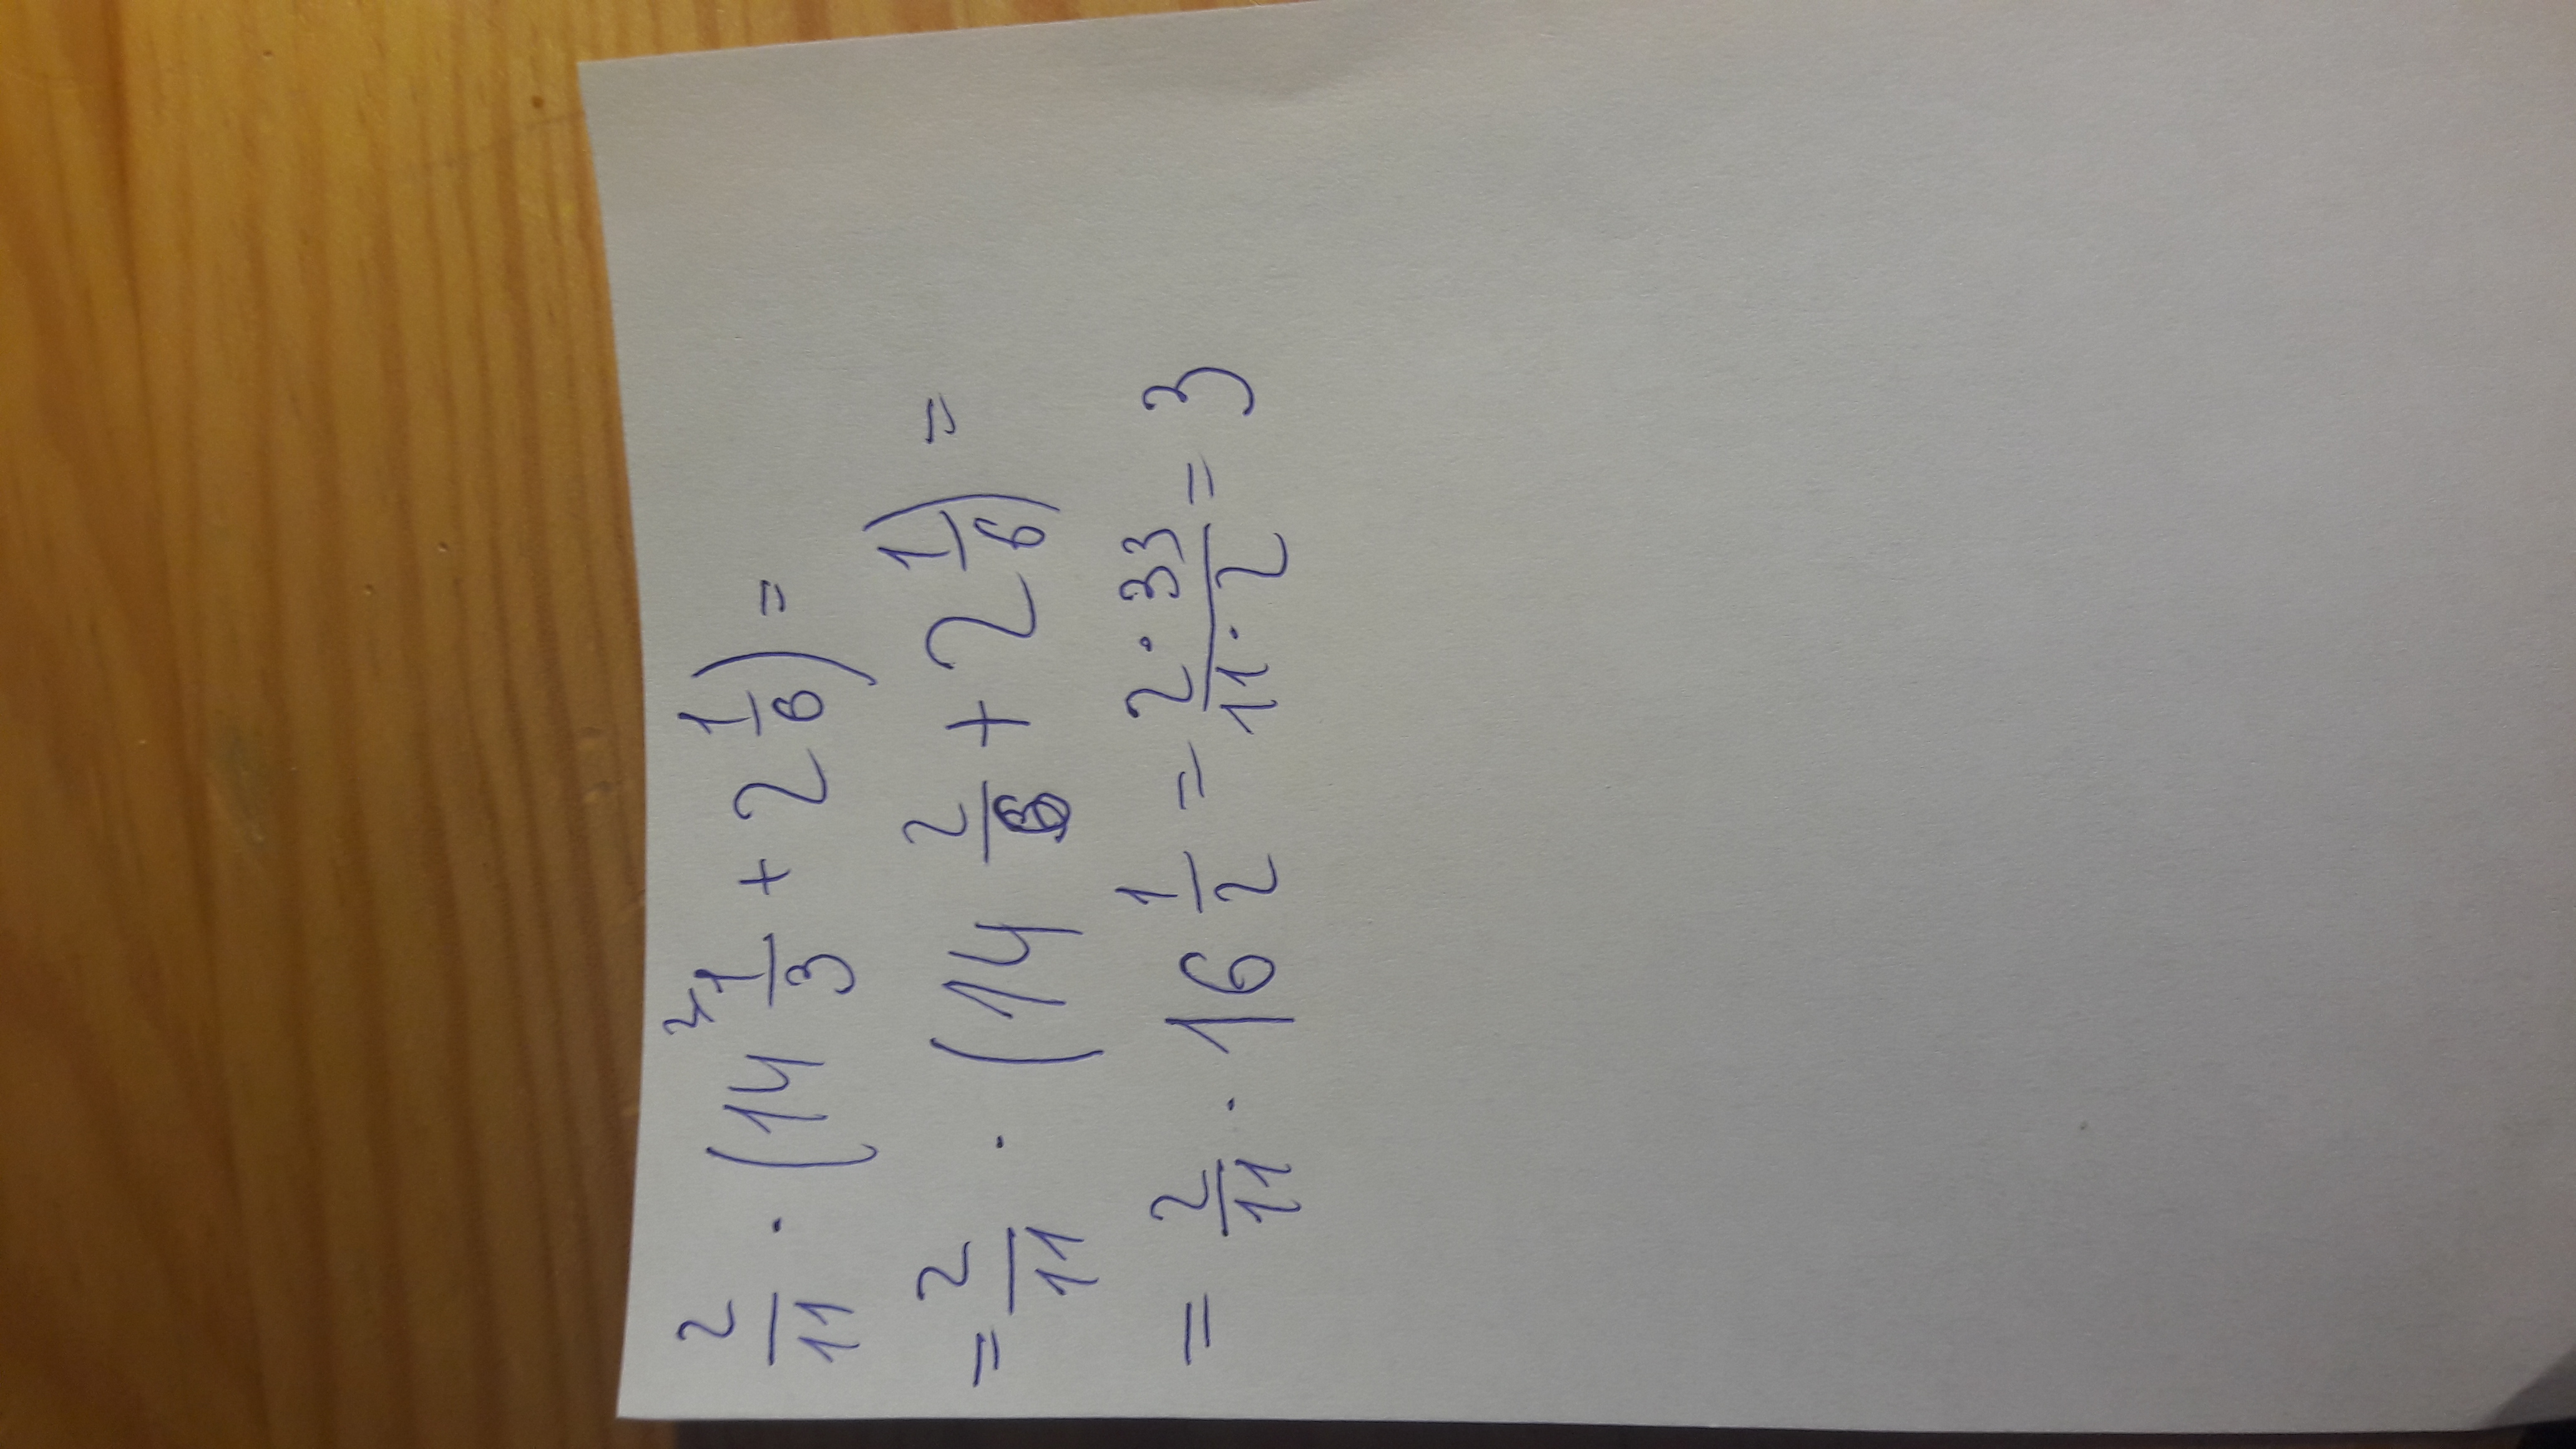 2/11 · (14 2\1/3 + 2 1/6) =
= 2/11 · (14 2/6 + 2 1/6) =
= 2/11 · 16 1/2 = 2·33/11·2 = 3